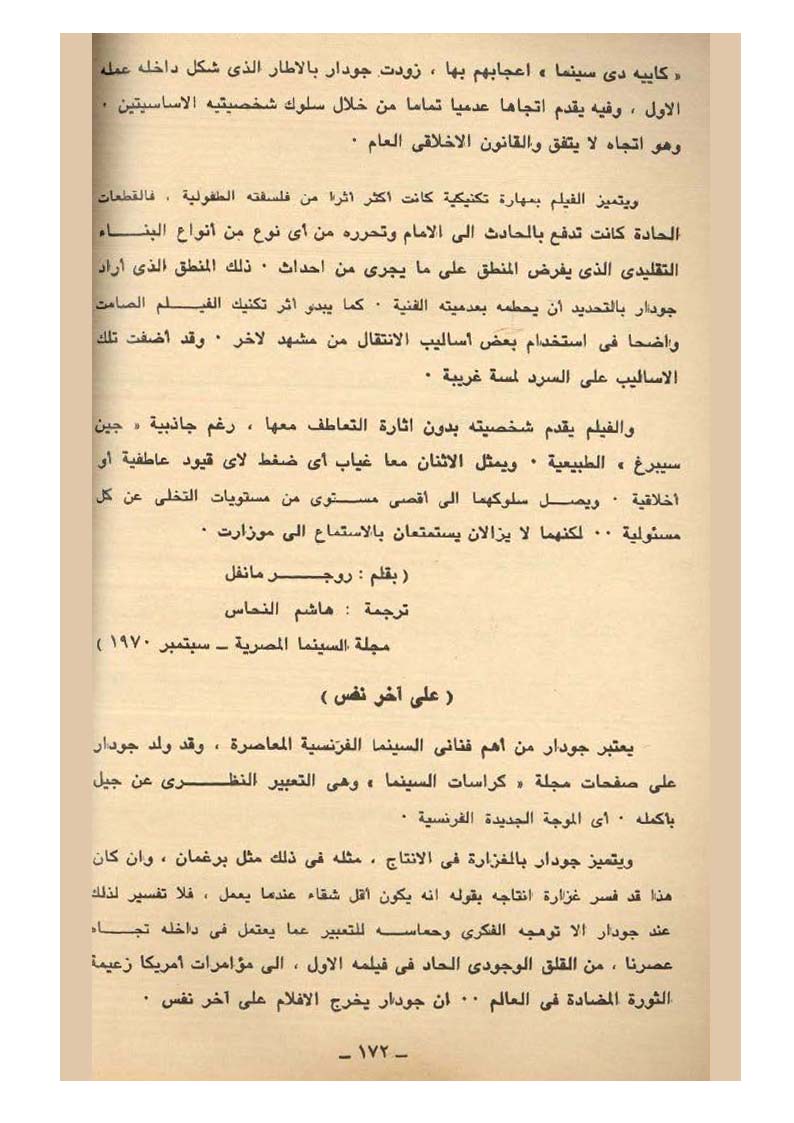 « كاييه دى سينما » اعجابهم بها ، زودت جودار بالاطار الذى شكل داخله عمله
الاول ، وفيه يقدم اتجاها عدميا تماما من خلال سلوك شخصيتيه الاساسيتين ٠
وهو اتجاه لا يتفق والقانون الاخلاقى العام ٠
ويتميز الفيلم بمهارة تكنيكية كانت أكثر أثرا من فلسفته الطفولية ، فالقطعات
الحادة كانت تدفع بالحادث الى الامام وتحرره من أى نوع من أنواع البنـــاء
التقليدى الذى يفرض المنطق على ما يجرى من احداث ٠ ذلك المنطق الذى أراد
جودار بالتحديد أن يحطمه بعدميته الفنية ٠ كما يبدو أثر تكنيك الفيـــلم الصامت
واضحا فى استخدام بعض أساليب الانتقال من مشهد لاخر ٠ وقد أضفت تلك
الاساليب على السرد لمسة غريبة ٠
والفيلم يقدم شخصيته بدون اثارة التعاطف معها ، رغم جاذبية « جين
سيبرغ » الطبيعية ٠ ويمثل الاثنان معا غياب أى ضغط لاى قيود عاطفية أو
أخلاقية ٠ ويصـــل سلوكهما الى أقصى مستـــوى من مستويات التخلى عن كل
مسئولية ٠٠ لكنهما لا يزالان يستمتعان بالاستماع الى موزارت ٠
( بقلم : روجــــر مانفل
ترجمة : هاشم النحاس
مجلة السينما المصرية ــ سبتمبر ١٩٧٠ )
( على آخر نفس )
يعتبر جودار من أهم فنانى السينما الفرنسية المعاصرة ، وقد ولد جودار
على صفحات مجلة « كراسات السينما » وهى التعبير النظـــرى عن جيل
بأكمله ٠ أى الموجة الجديدة الفرنسية ٠
ويتميز جودار بالغزارة فى الانتاج ، مثله فى ذلك مثل برغمان ، وان كان
هذا قد فسر غزارة انتاجه بقوله انه يكون أقل شقاء عندما يعمل ، فلا تفسير لذلك
عند جودار الا توهجه الفكري وحماســـه للتعبير عما يعتمل فى داخله تجـــاه
عصرنا ، من القلق الوجودى الحاد فى فيلمه الاول ، الى مؤامرات أمريكا زعيمة
الثورة المضادة فى العالم ٠٠ ان جودار يخرج الافلام على آخر نفس ٠
ــ ١٧٢ ــ